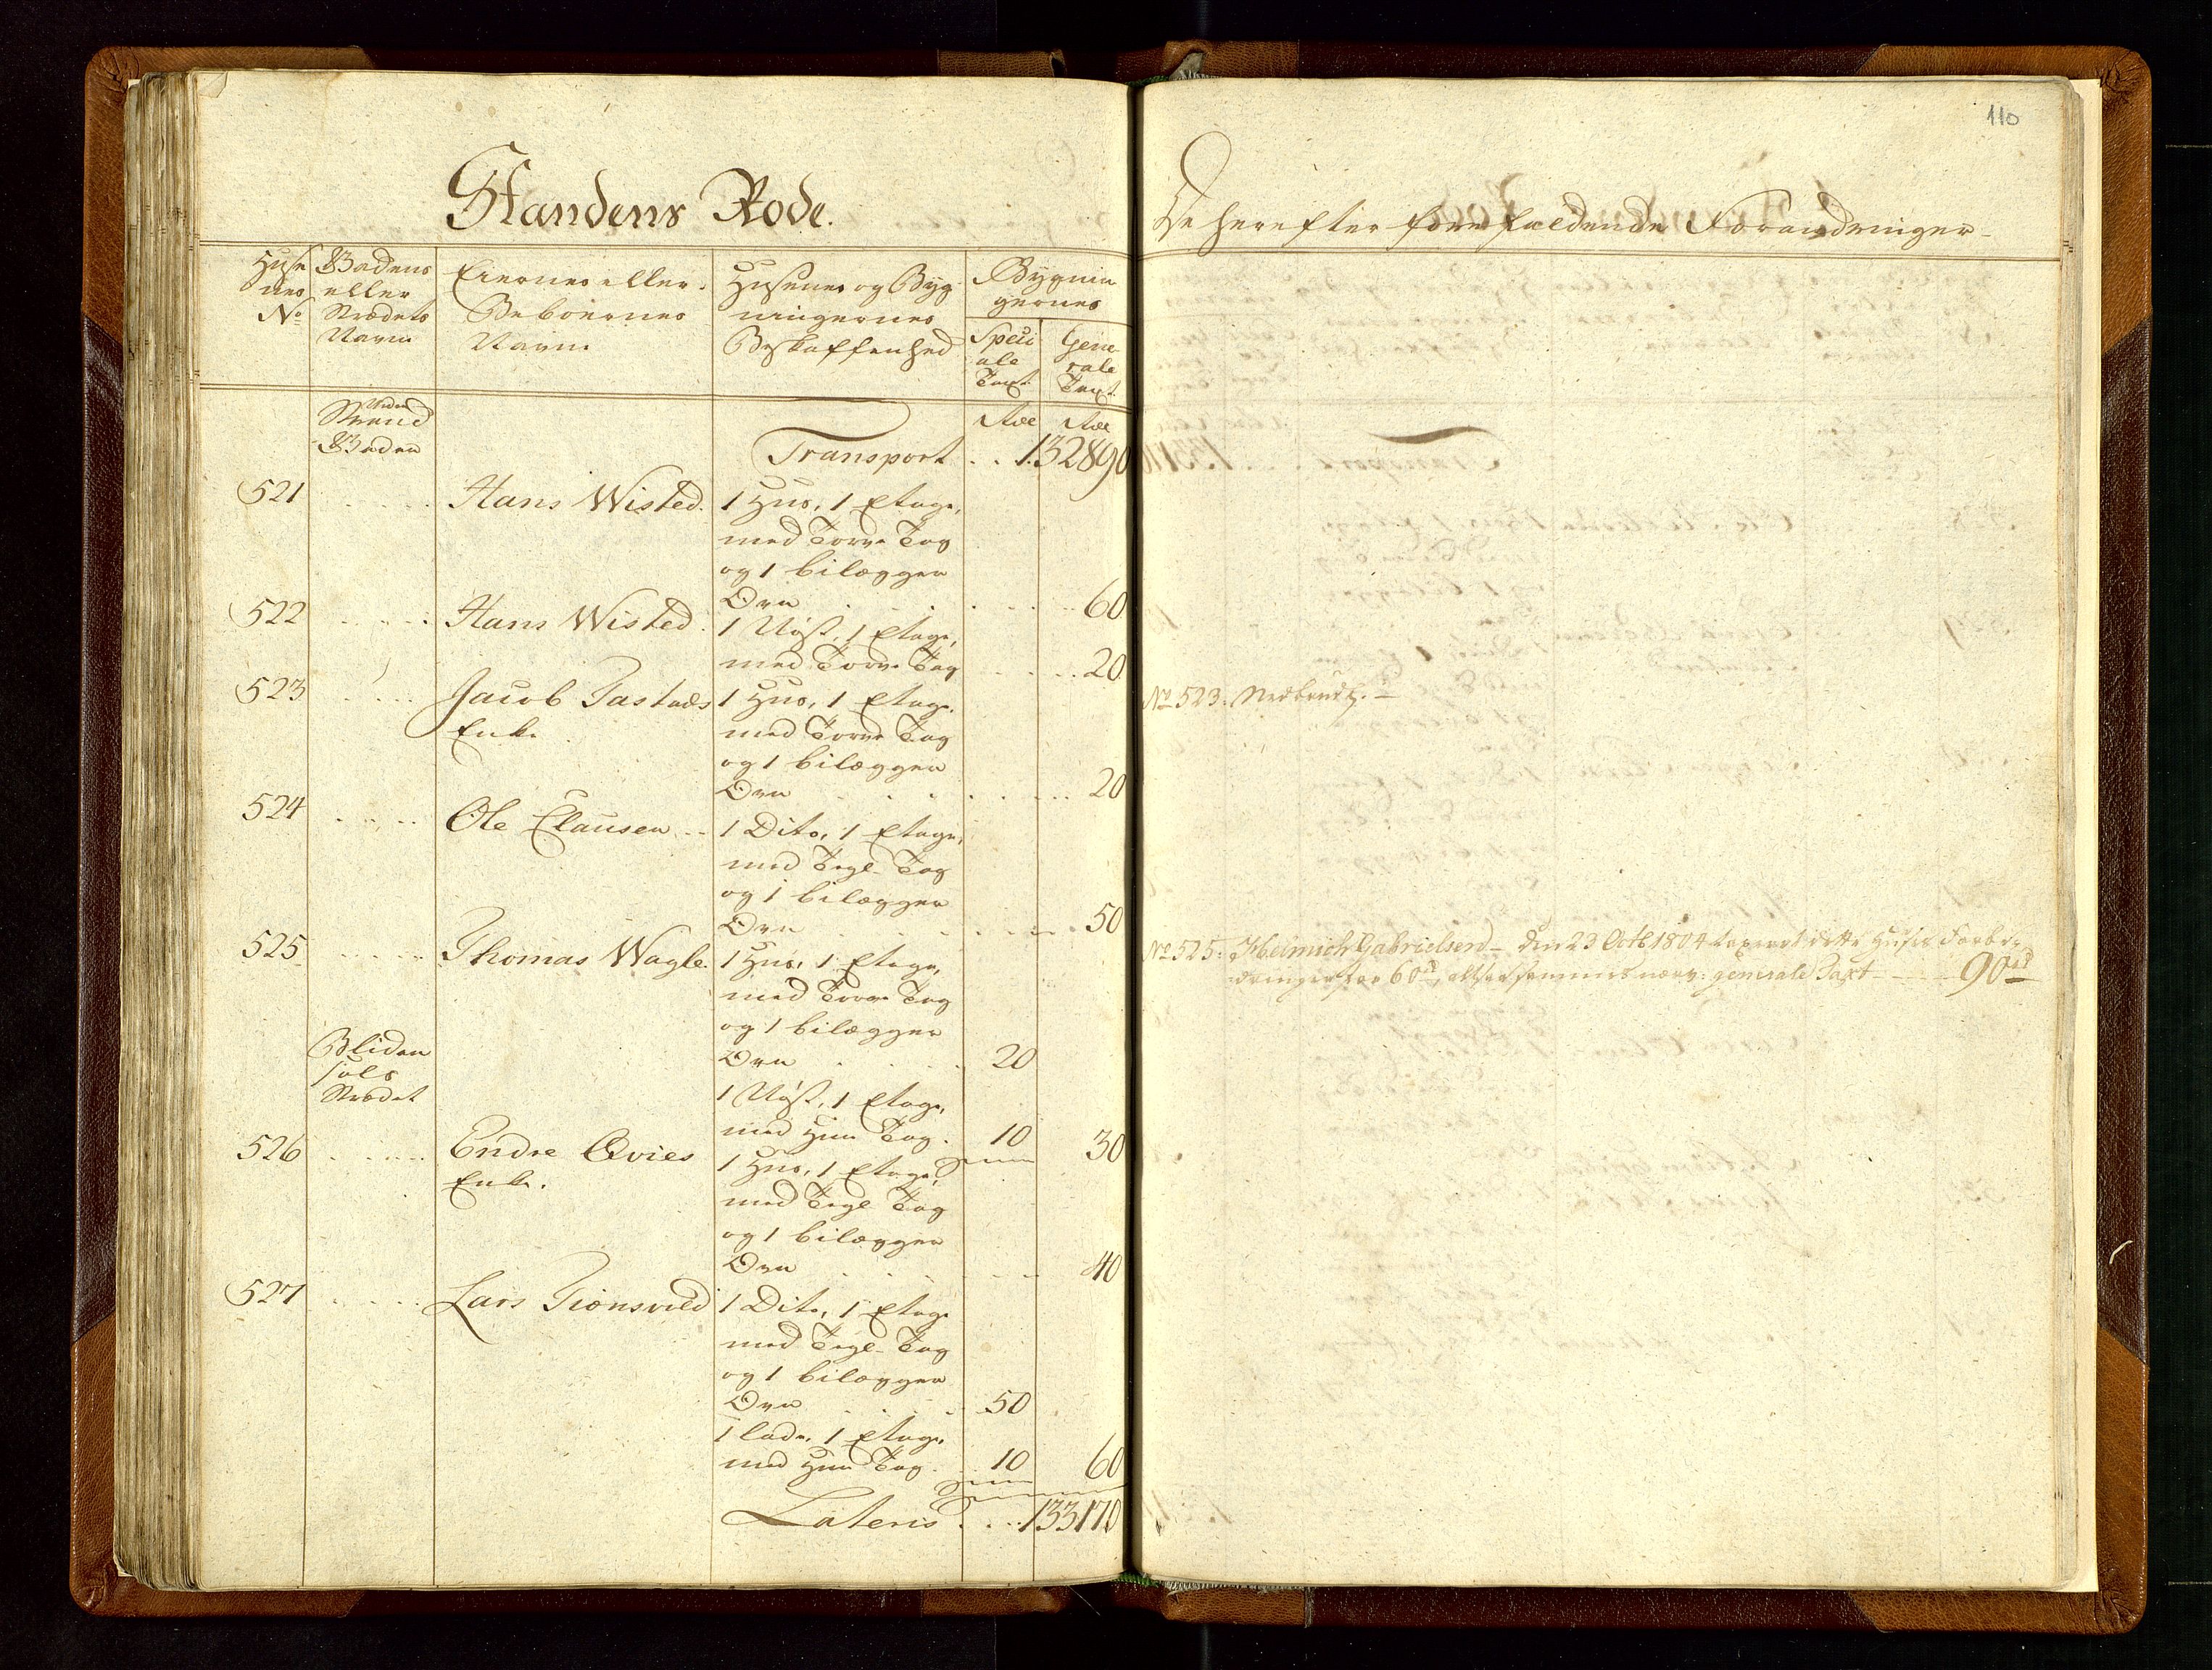 Standens Rode.
Huse
nes
No
Gadens
eller
Strædets
Navn
Eiernes eller
Beboernes
Navn
Husenes og Byg-
ningernes
Beskaffenhed
Bygnin
gernes
Speci
ale
Taxt
Gene-
rale
Taxt
Neden
Strand
Gaden
Rdl Rdl
Transport . . 132890
521 Hans Wisted. 1 Hus, 1 Etage,
med Torve Tag
og 1 bilægger
Ovn 60
522 Hans Wisted. 1 Nøst, 1 Etage,
med Torve Tag 20
523 Jacob Tastads 1 Hus, 1 Etage,
Enke med Torve Tag
og 1 bilægger
Ovn 20
524 Ole Clausen 1 Dito, 1 Etage,
med Tegl Tag
og 1 bilægger
Ovn 50
525 Thomas Wagle. 1 Hus, 1 Etage,
med Torve Tag
og 1 bilægger
Ovn 20
Bliden
sols
Strædet
1 Nøst, 1 Etage,
med Hun Tag. 10 30
526 Endre Qvies 1 Hus, 1 Etage,
Enke. med Tegl Tag
og 1 bilægger
Ovn 40
527 Lars Tionsvild 1 Dito, 1 Etage
med Tegl Tag
og 1 bilægger
Ovn 50
1 lade, 1 Etage,
med Hun Tag. 10 60
Lateris . . . 133170
110
De herefter forefaldende Forandringer
No 523: Nedbrudt.
No 525: Heinrich Gabrielsen den 23 Octb 1804 taxeret dette Huses Forbe-
dringer for 60rd, altsaa sammes nærv: generale Taxt 90rd